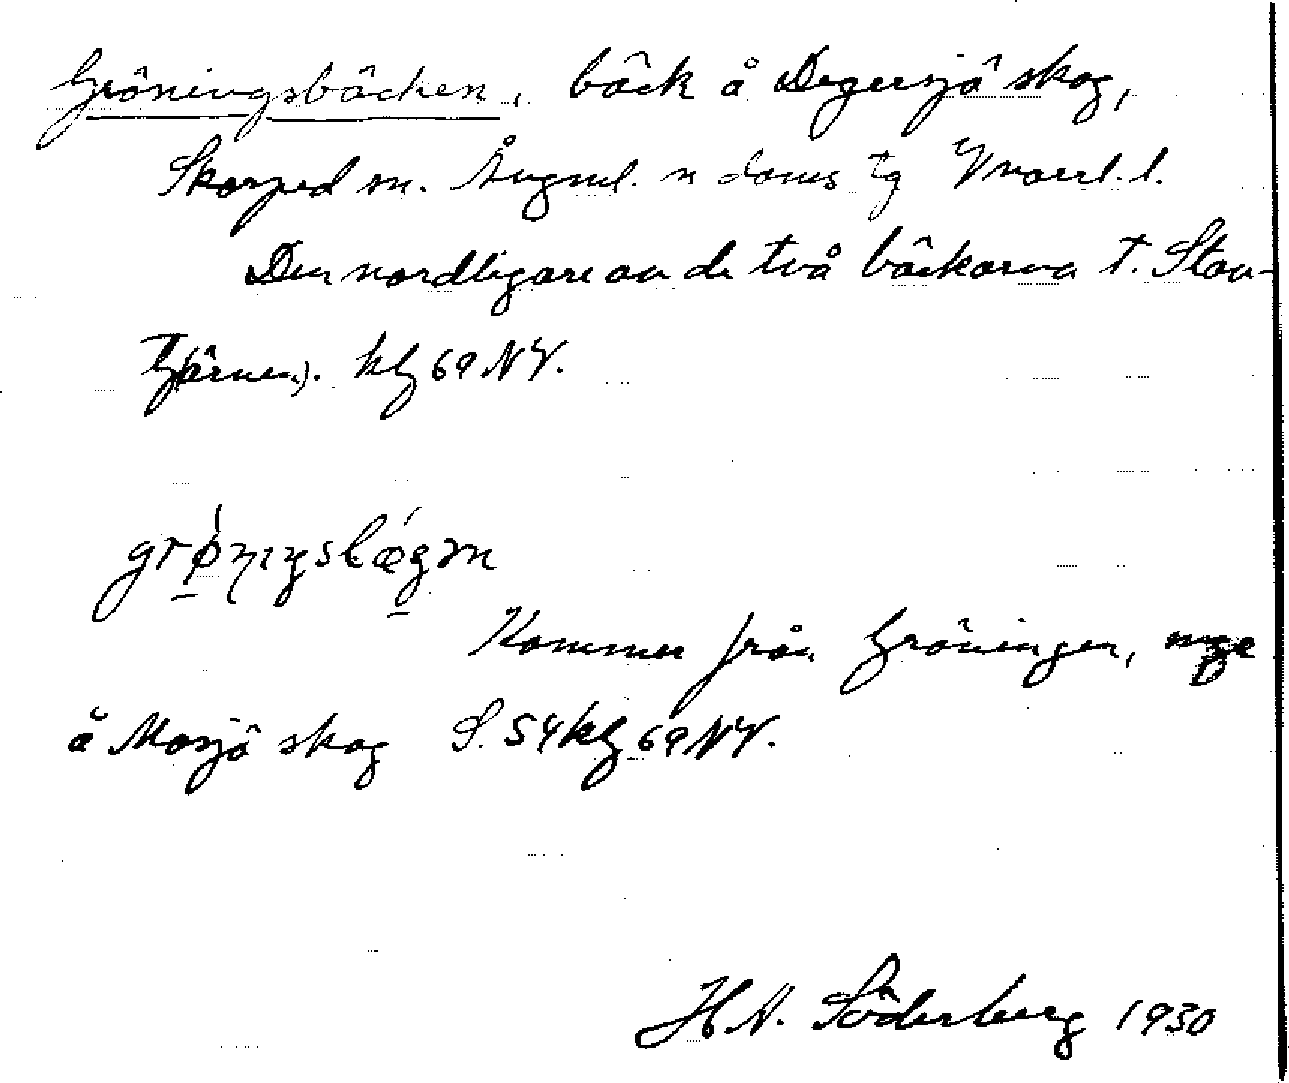 Gröningsbäcken, bäck å Degersjö skog,
Skorped sn. Ångml. n doms tg Vnorrl. l.
Den nordligare av de två bäckarna t. Stav-
tjärnen). kbl 69 NV.
Kommer från Gröningen, myr
å Mosjö skog S. 54 kbl 69 NV.
H.N. Söderberg 1930